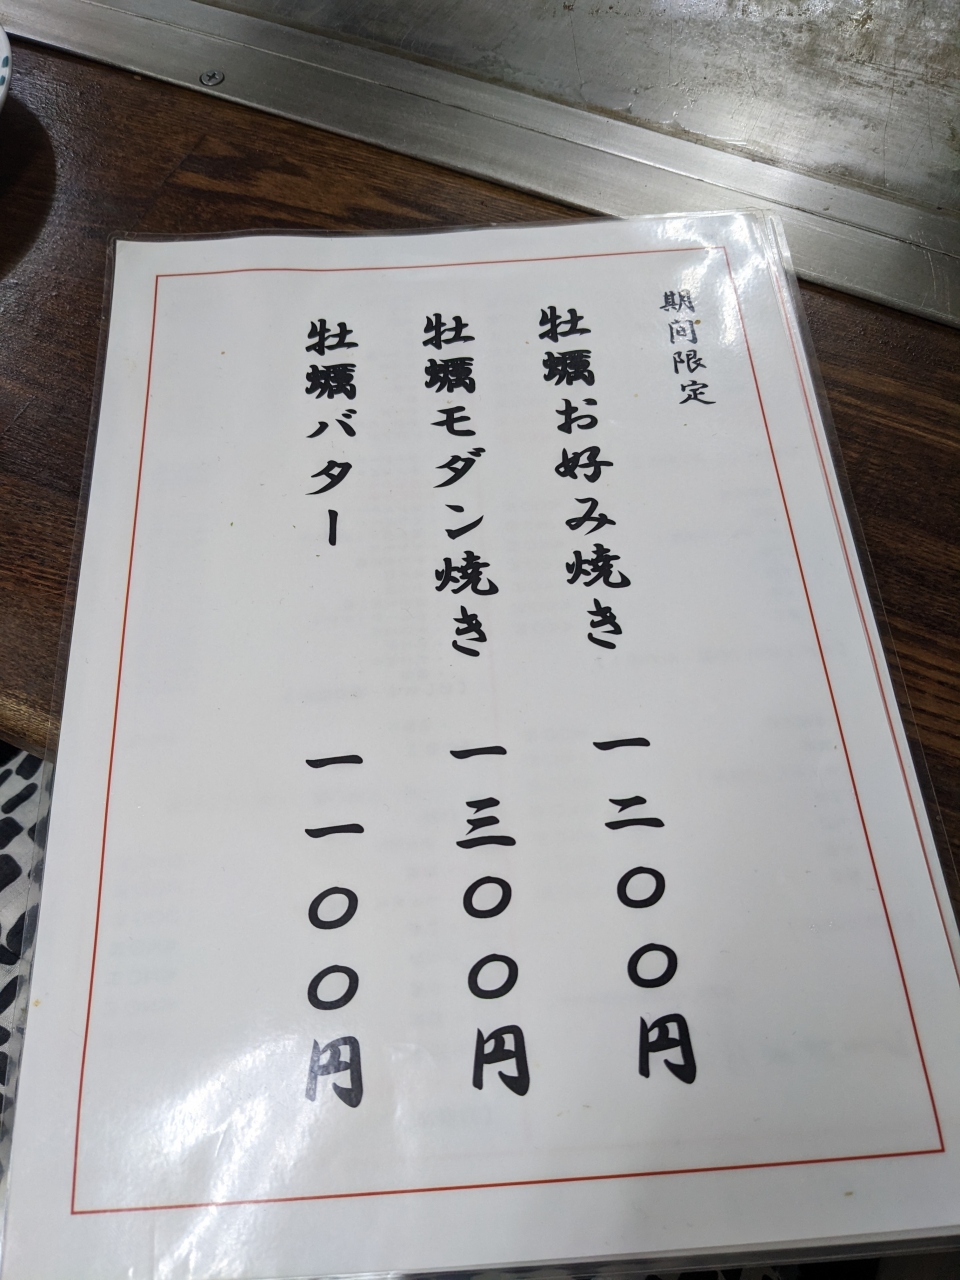 期間限定
牡蠣お好み焼き 一二〇〇円
牡蠣モダン焼き 一三〇〇円
牡蠣バター 一一〇〇円